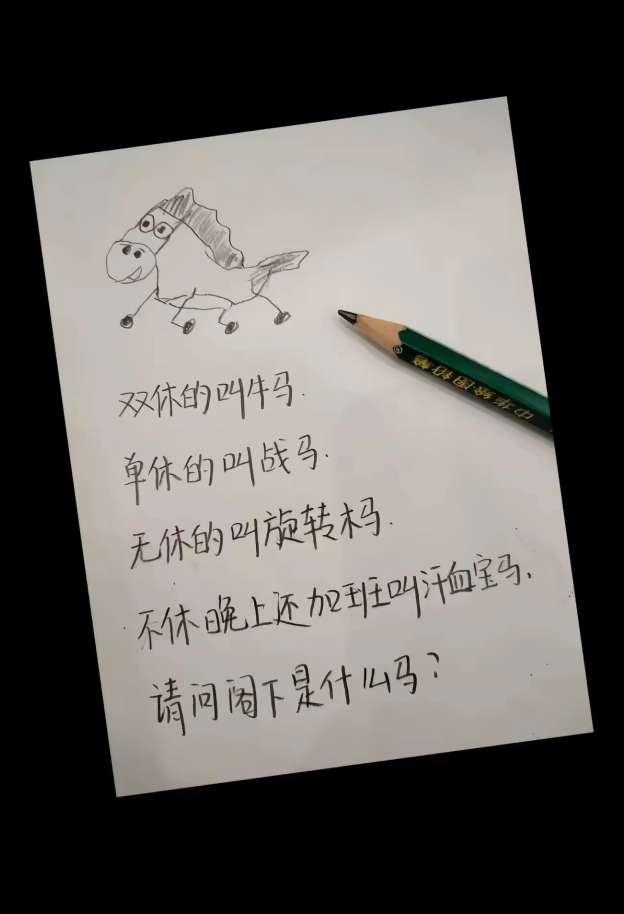 双休的叫牛马.
单休的叫战马.
无休的叫旋转木马.
不休晚上还加班叫汗血宝马.
请问阁下是什么马?
中华绘图铅笔